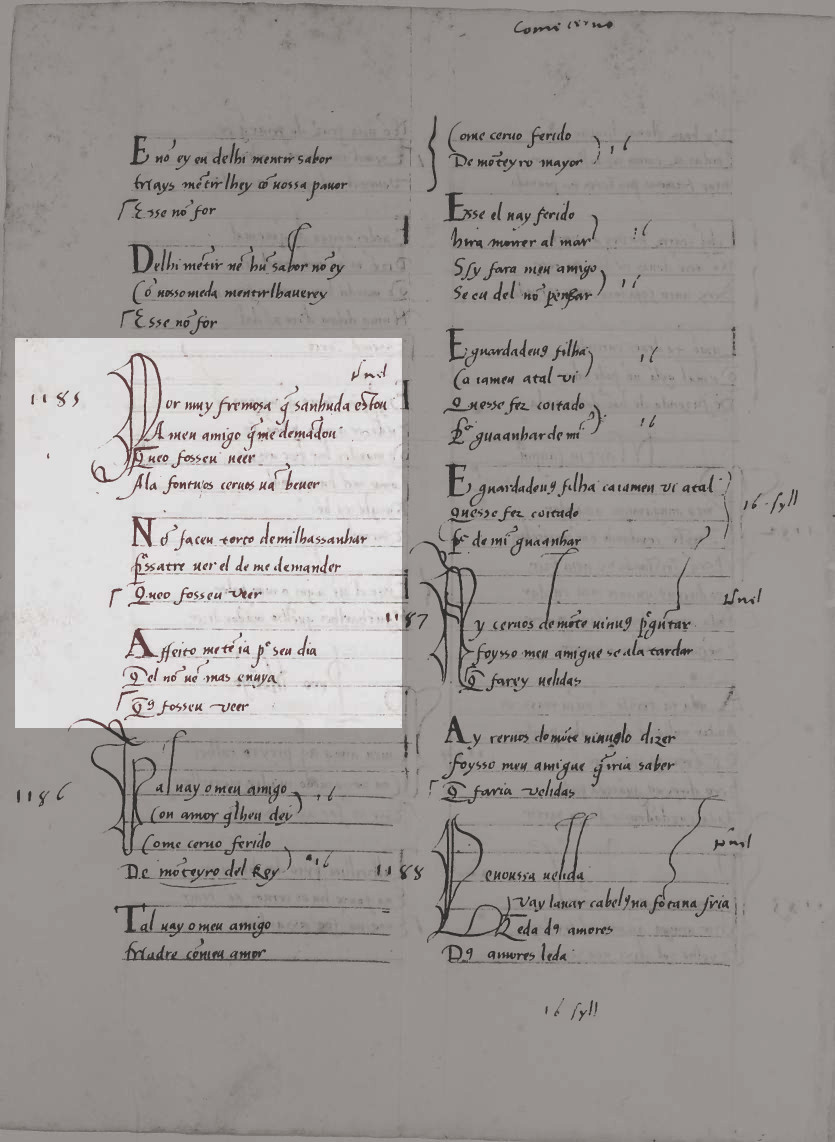 Come ceruo
E nō ey eu delhi mentir sabor
Madre mays mētirlhey cō uossa pauor
Esse nō for
Delhi mētir nē hūu sabor nō ey
Cō uosso meda mentirlhauerey
Esse nō for
1185
Por muy fremosa q̄ sanhuda estou
A meu amigo q̄me demādou
Queo fosseu ueer
Ala font uos ceruos uā beuer
Nō faceu torto demilhassanhar
Pssatre uer el de me demander
Queo fosseu veer
Affeito me tē ia pᵉ seu dia
Q̄el nō uē mas enuya
Q̄9 fosseu veer
1186
Tal uay o meu amigo
Con amor q̄lheu dei
16
Come ceruo ferido
De mōteyro del Rey
16
Tal uay o meu amigo
Madre cōmeu amor
Come ceruo ferido
De mōteyro mayor
16
Esse el uay ferido
hira morrer al mar
16
Ssy fara meu amigo
Se eu del nō penssar
16
E guardadeu9 filha
Ca iameu atal vi
16
Quesse fez coitado
Pᵒ guaanhar de mī
16
E guardadeu9 filha ca iameu vi atal
Quesse fez coitado
pᵒ de mī guaanhar
16 syll
1187
Ay ceruos de mōte uinu9 p̄gūtar
foysso meu amigue se ala tardar
Q̄ farey uelidas
Ay ceruos do mōte uinuolo dizer
foysso meu amigue q̄iria saber
Q̄ faria velidas
1188
Leuoussa uelida
Vay lauar cabel9 na fōtana fria
Leda d9 amores
D9 amores leda
16 syll